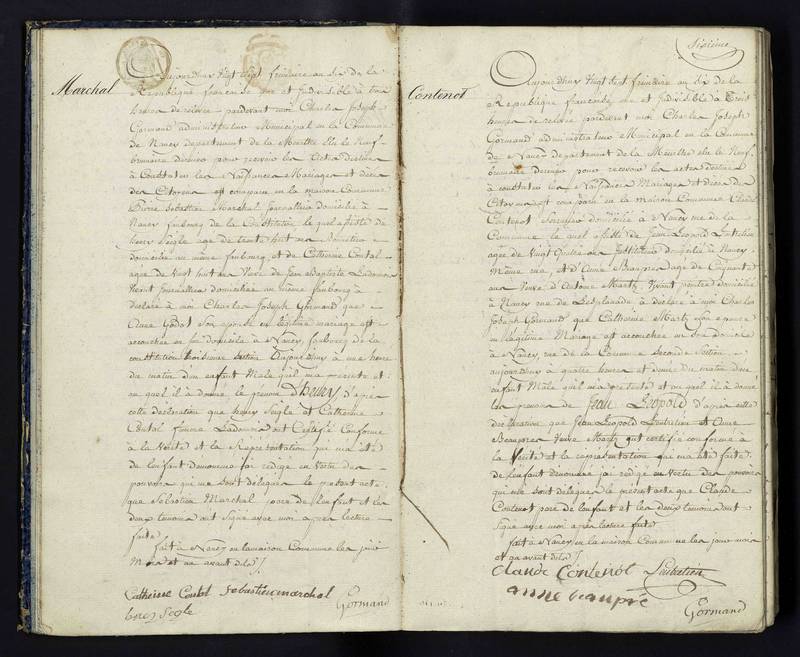 Marchal
Aujourd'huy vingt Sept frimaire an six de la
République française une et indivisible à trois
heures de relevée pardevant moi Charles Joseph
Gormand administrateur Municipal en la Commune
de Nancy département de la Meurthe Elu le Neuf
brumaire dernier pour recevoir les Actes destinés
à Constater les Naissances Mariages et décès
des Citoyens est comparu en la maison Commune
Sebastien Marchal Journallier domicilié à
Nancy faubourg de la Constitution le quel assisté de
henry Seigle agé de trente huit ans
domicilié au même faubourg, et de Catherine Contal
agée de vingt huit ans Jean Baptiste Ladonne
Journallier domiciliée au même faubourg à
déclaré à moi Charles Joseph Gormand que
Anne Godot Son épouse en légitime mariage est
accouchée en Son domicile à Nancy, faubourg de la
constitution troisieme Section Aujourd'huy à une heure
du matin d'un enfant Male qu'il m'a présenté et
au quel il a donné le prénom d'henry d'après
cette déclaration que henry Seigle et Catherine
Contal femme Ladonne ont Certifié Conforme
à la Vérité et la Représentation qui m'a été
de l'enfant denommé j'ai rédigé en vertu des
pouvoirs qui me sont délégués le présent acte
que Sebastien Marchal père de l'enfant et les
deux temoins ont Signé avec moi après lecture
faite
fait à Nancy en la maison Commune les jour
Mois et an avant dits
Catherine Contal Sebastien marchal
Gormand
Sixième
Contenot
Aujourd'huy Vingt Sept frimaire an six de la
République française une et indivisible à trois
heures de relevée pardevant moi Charles Joseph
Gormand administrateur Municipal en la Commune
de Nancy département de la Meurthe élu le Neuf
brumaire dernier pour recevoir les actes destinés
à constater les Naissances Mariages et décès des
Citoyens est comparu en la maison Commune Claude
Contenot domicilié à Nancy rue de la
Commune le quel assisté de Jean Leopold
agé de Vingt ans Instituteur domicilié à Nancy
Même rue, et d'Anne Beaupré agée de Cinquante
ans Veuve d'Antoine Martz Vivant peintre domiciliée
à Nancy rue de l'esplanade à déclaré à moi Charles
Joseph Gormand que Catherine Martz Son épouse
en légitime Mariage est accouchée en Son domicile
à Nancy, rue de la Commune Seconde Section
aujourd'huy à quatre heures et demie du matin d'un
enfant Male qu'il m'a présenté et au quel il a donné
les prénoms de Jean Léopold d'après cette
déclaration que Jean Léopold et Anne
Beaupré Veuve Martz ont certifié conforme à
la Vérité et la représentation qui m'a été faite
de l'enfant denommé j'ai rédigé en vertu des pouvoirs
qui me sont délégués le présent acte que Claude
Contenot père de l'enfant et les deux temoins ont
Signé avec moi après lecture faite
fait à Nancy en la maison Commune les jour mois
et an avant dits
claude Contenot
anne beaupré
Gormand